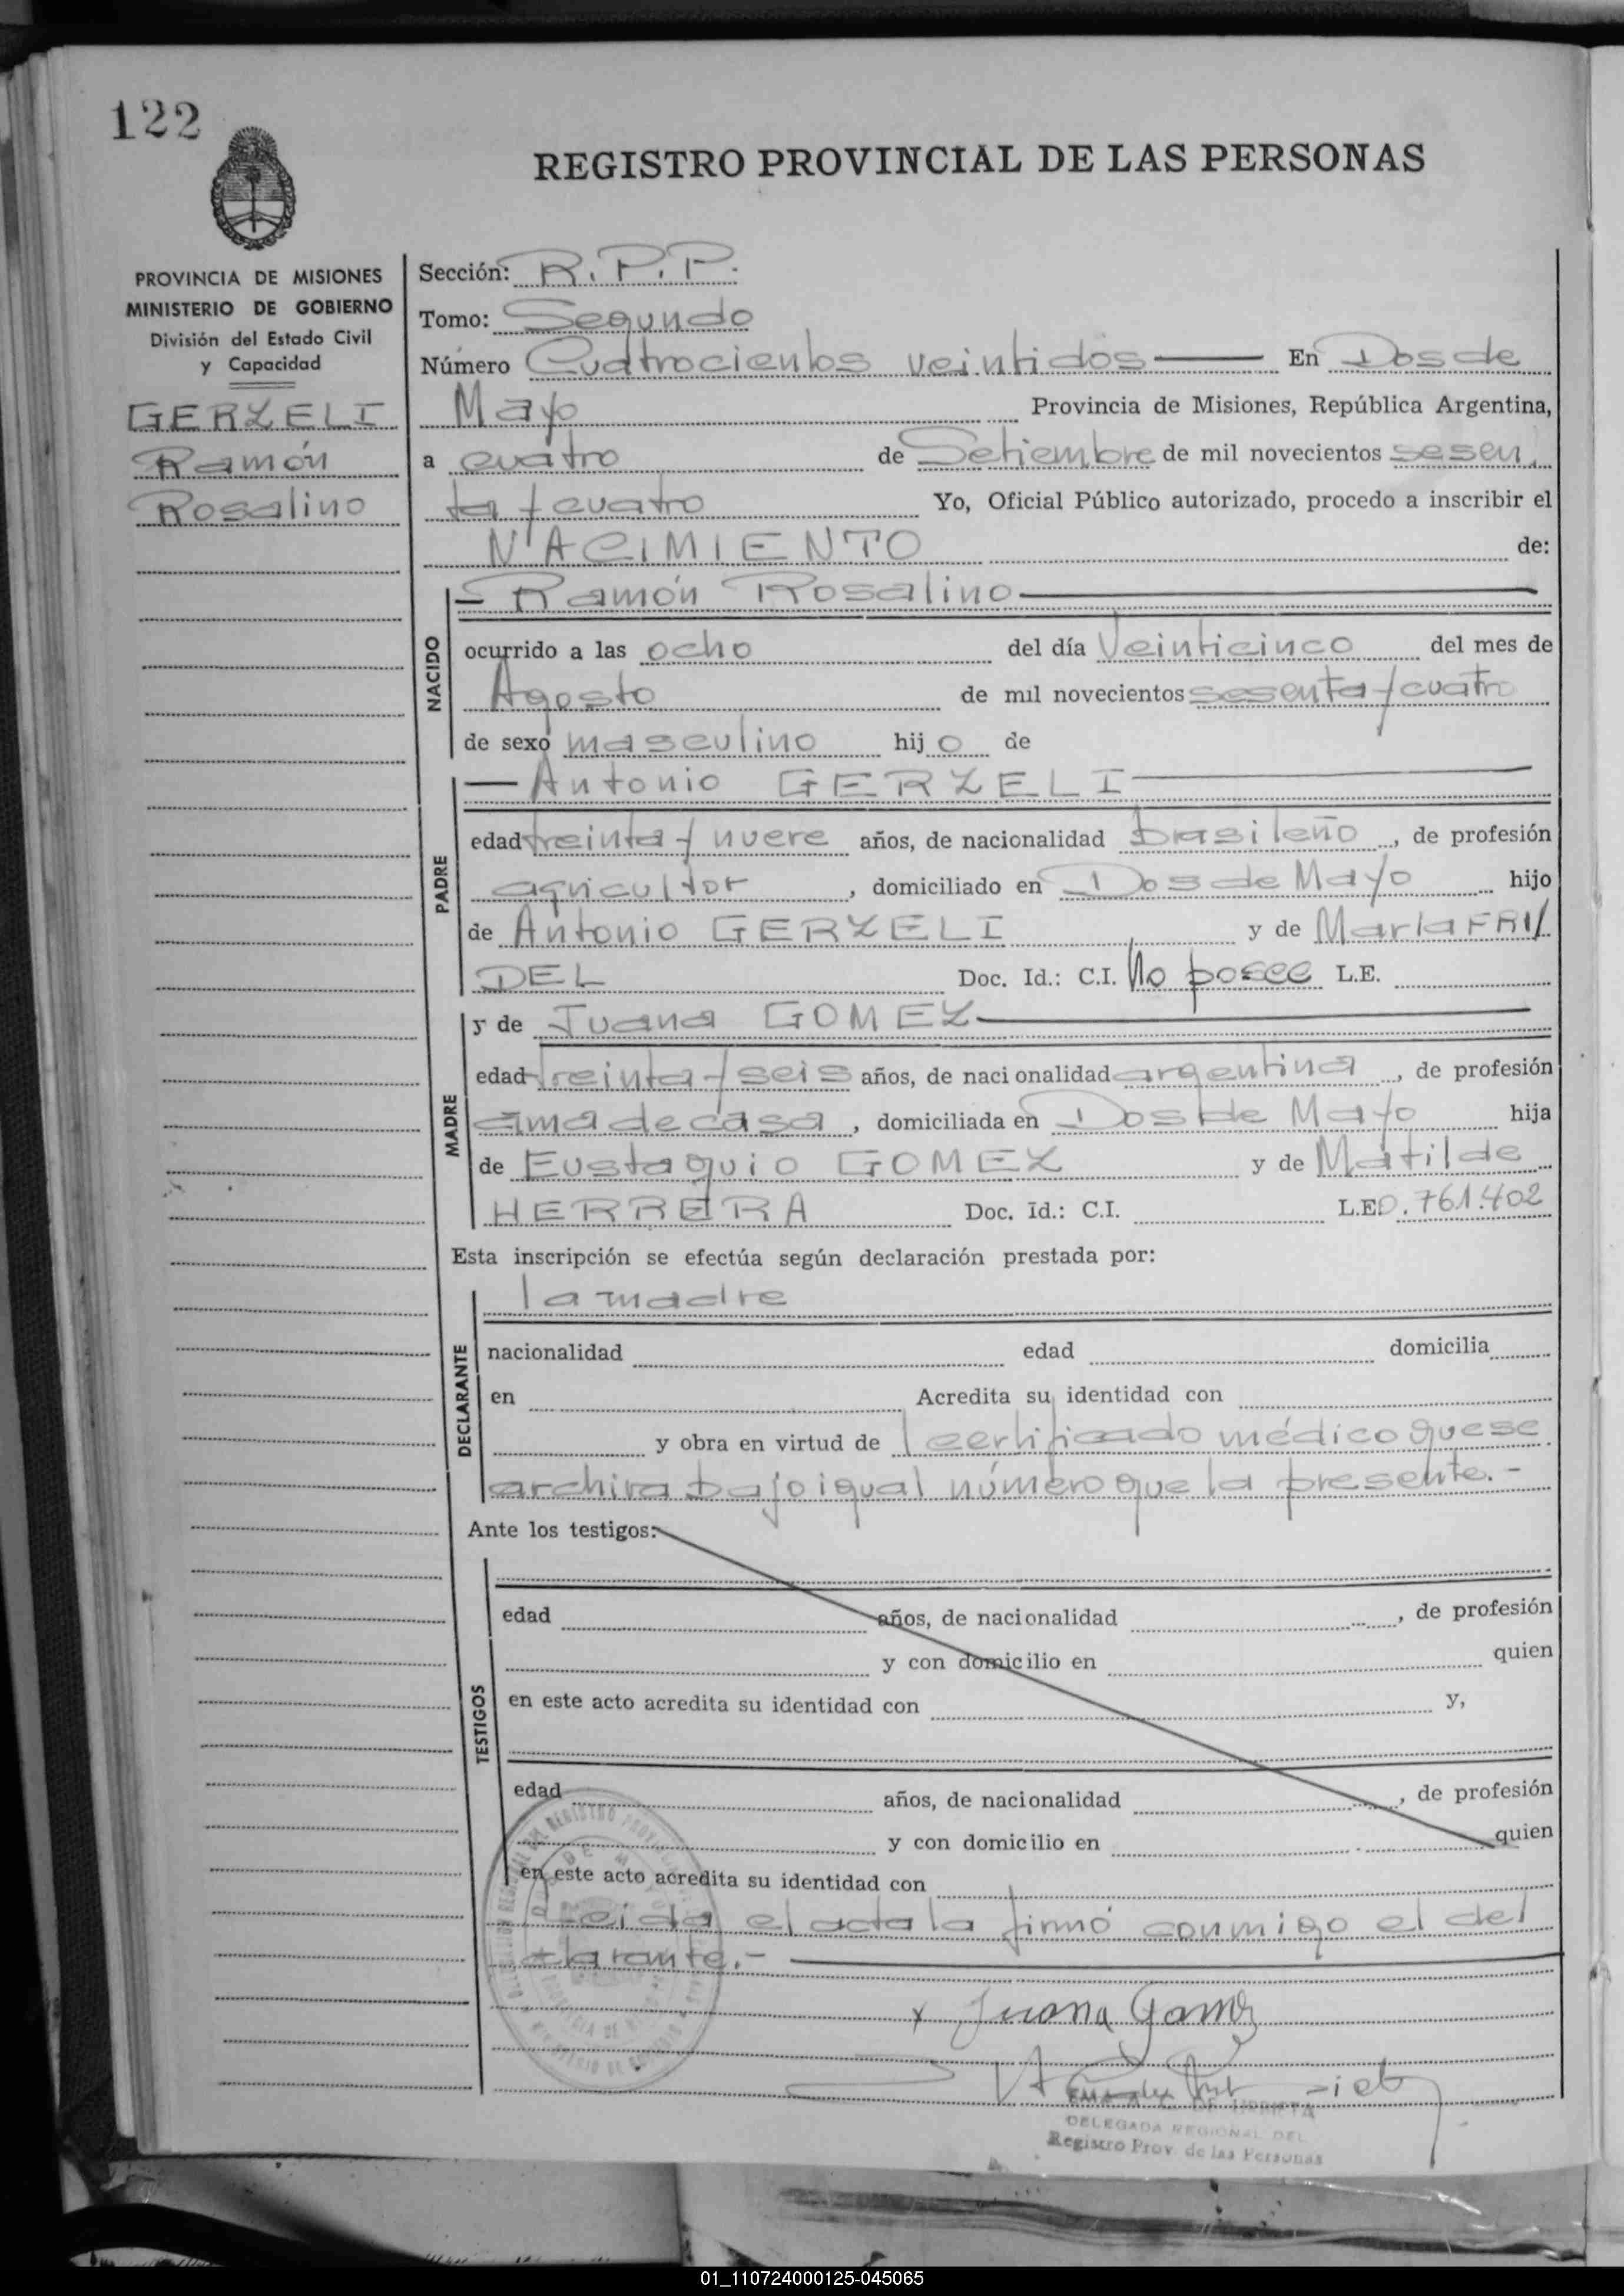 122
REGISTRO PROVINCIAL DE LAS PERSONAS
PROVINCIA DE MISIONES
MINISTERIO DE GOBIERNO
División del Estado Civil
y Capacidad
GERZELI
Ramón
Rosalino
Sección: R.P.P.
Tomo: Segundo
Número Cuatrocientos veintidos En Dos de
Mayo Provincia de Misiones, República Argentina,
a cuatro de Setiembre de mil novecientos sesen
ta y cuatro Yo, Oficial Público autorizado, procedo a inscribir el
NACIMIENTO de:
NACIDO
— Ramón Rosalino
ocurrido a las ocho del día Veinticinco del mes de
Agosto de mil novecientos sesenta y cuatro
de sexo masculino hijo de
PADRE
— Antonio GERZELI
edad treinta y nueve años, de nacionalidad brasileño, de profesión
agricultor, domiciliado en Dos de Mayo hijo
de Antonio GERZELI y de María FRI/
DEL Doc. Id.: C.I. No posee L.E.
MADRE
y de Juana GOMEZ
edad treinta y seis años, de nacionalidad argentina, de profesión
ama de casa, domiciliada en Dos de Mayo hija
de Eustaquio GOMEZ y de Matilde
HERRERA Doc. Id.: C.I. L.E. 0.761.402
Esta inscripción se efectúa según declaración prestada por:
DECLARANTE
la madre
nacionalidad edad domicilia
en Acredita su identidad con
y obra en virtud de l certificado médico que se
archiva bajo igual número que la presente.-
Ante los testigos:
TESTIGOS
edad años, de nacionalidad , de profesión
y con domicilio en quien
en este acto acredita su identidad con y,
edad años, de nacionalidad , de profesión
y con domicilio en quien
en este acto acredita su identidad con
Leida el acta la firmó conmigo el de/
clarante.-
x Juana Gomez
DE URRIETA
DELEGADA REGIONAL DEL
Registro Prov. de las Personas
01_110724000125-045065